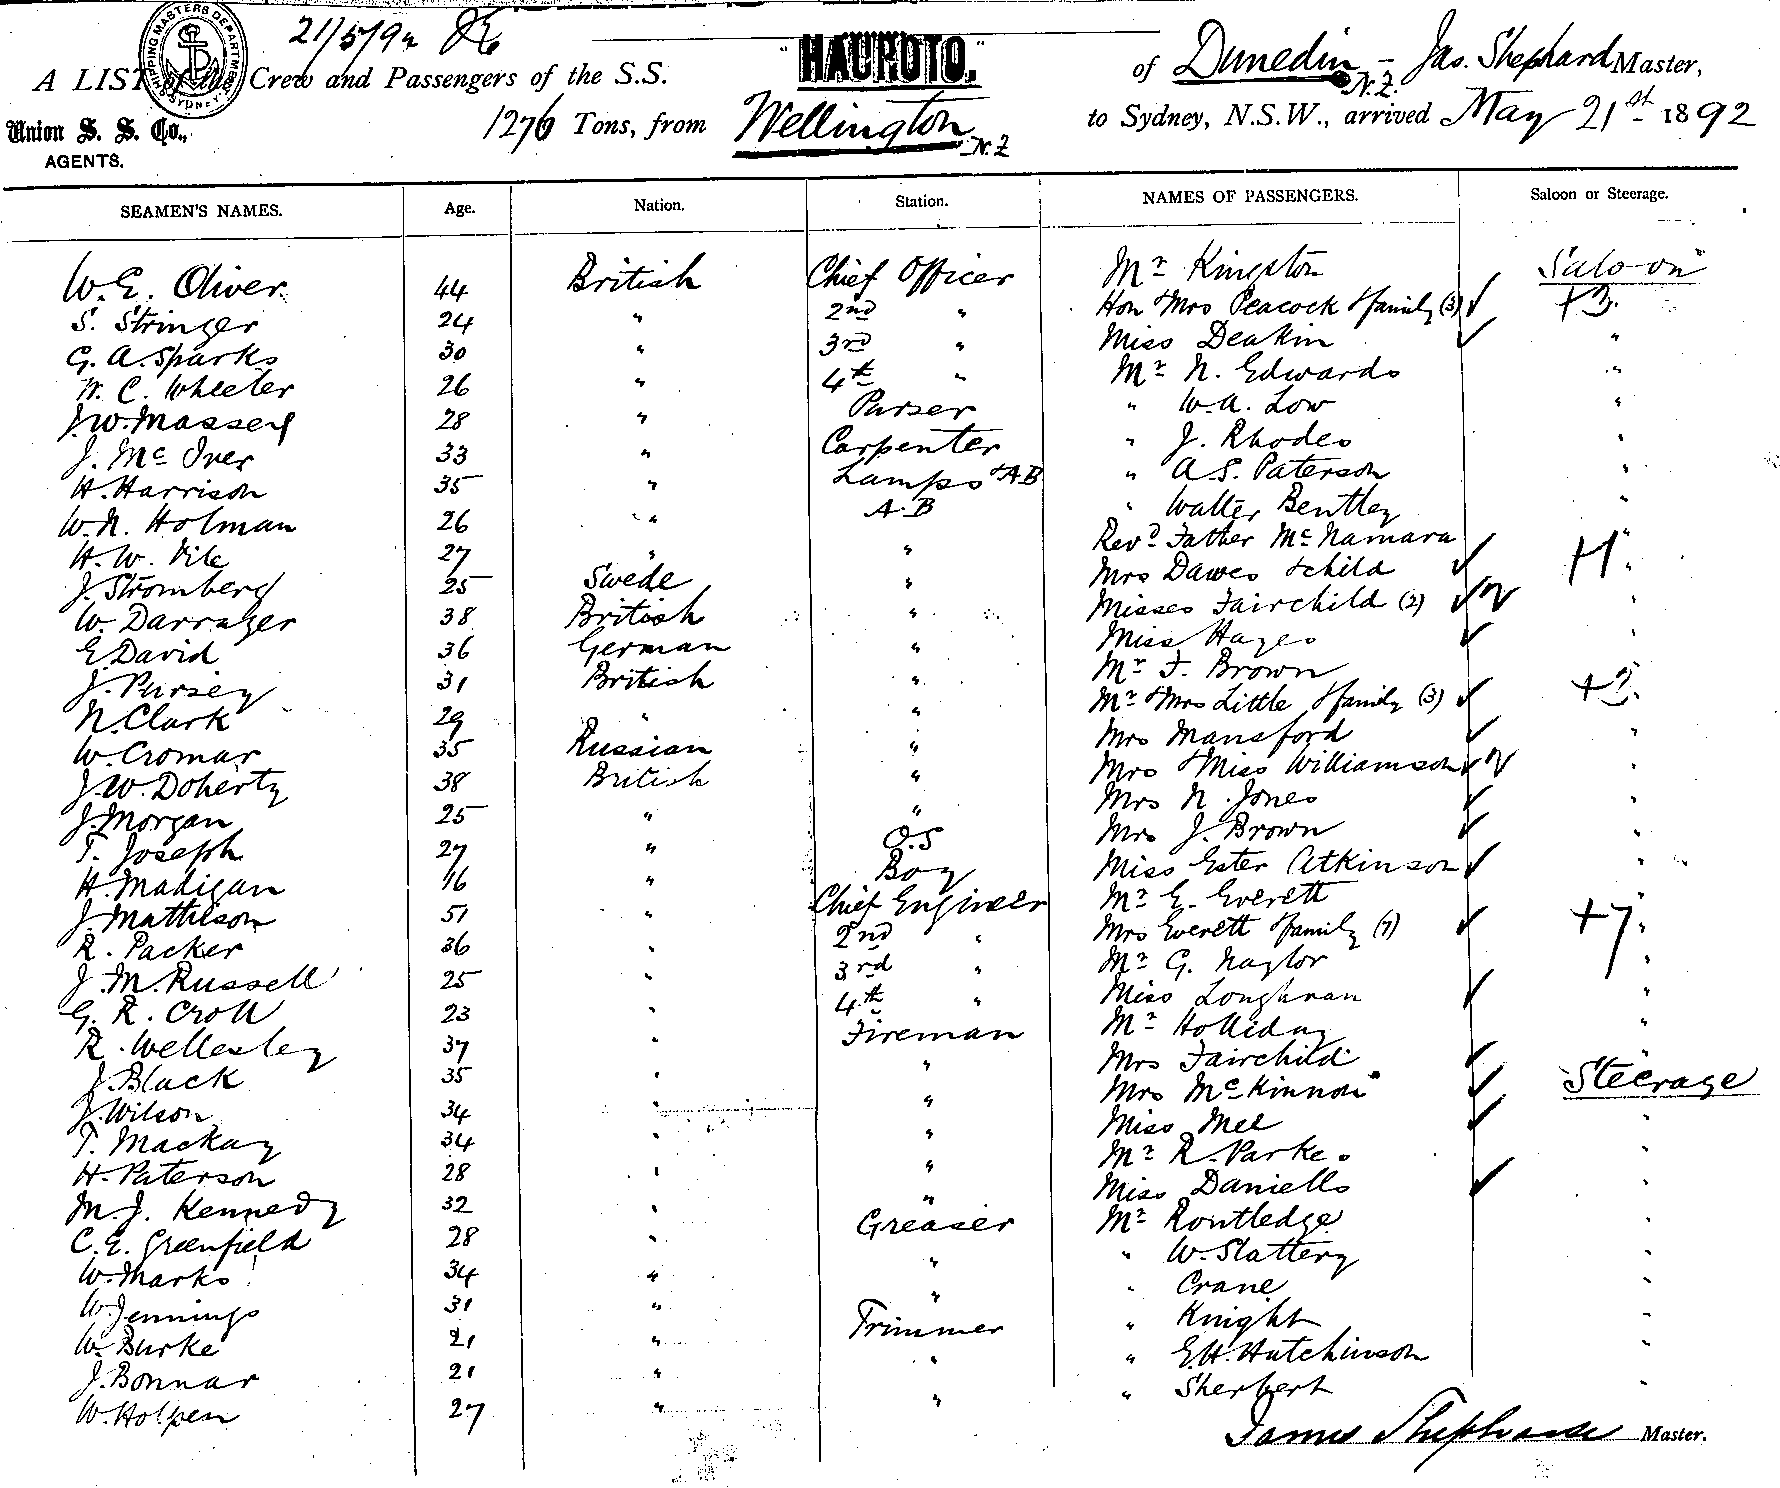 21/5/92
SHIPPING MASTERS DEPARTMENT SYDNEY
A LIST of the Crew and Passengers of the S.S. "HAUROTO." of Dunedin N.Z. - Jas. Shephard Master,
Union S. S. Co., AGENTS.
1276 Tons, from Wellington N.Z to Sydney, N.S.W., arrived May 21st 1892
SEAMEN'S NAMES. Age. Nation. Station. NAMES OF PASSENGERS. Saloon or Steerage.
W. E. Oliver 44 British Chief Officer Mr Kingston Saloon
S. Stringer 24 " 2nd " Hon & Mrs Peacock & family (3) ✓ +3 "
G. A. Sparks 30 " 3rd " Miss Deakin ✓ "
W. C. Wheeler 26 " 4th " Mr N. Edwards "
J. W. Massey 28 " Purser " W. A. Low "
J. Mc Iver 33 " Carpenter " J. Rhodes "
H. Harrison 35 " Lamps & A B " A. S. Paterson "
W. N. Holman 26 " A. B " Walter Bentley "
H. W. Vile 27 " " Revd Father Mc Namara
J. Stromberg 25 Swede " Mrs Dawes & child ✓ +1 "
W. Darrager 38 British " Misses Fairchild (2) ✓ "
E David 36 German " Miss Hayes ✓ "
J. Pursey 31 British " Mr F. Brown
N. Clark 29 " " Mr & Mrs Little & family (3) ✓ +3 "
W. Cromar 35 Russian " Mrs Mansford ✓ "
J. W. Doherty 38 British " Mrs & Miss Williamson ✓ "
J. Morgan 25 " " Mrs N. Jones ✓ "
T. Joseph 27 " O.S Mrs J. Brown ✓ "
H. Madigan 16 " Boy Miss Ester Atkinson ✓ "
J. Mathieson 51 " Chief Engineer Mr E. Everett
R. Packer 36 " 2nd " Mrs Everett & family (7) ✓ +7 "
J. M. Russell 25 " 3rd " Mr G. Naylor "
G. R. Croll 23 " 4th " Miss Loughnan ✓ "
R. Wellesley 37 " Fireman Mr Holliday "
J. Black 35 " " Mrs Fairchild ✓ "
J. Wilson 34 " " Mrs Mc Kinnon ✓ Steerage
T. Mackay 34 " " Miss Mee ✓ "
H. Paterson 28 " " Mr R. Parkes "
M. J. Kennedy 32 " " Miss Daniells ✓ "
C. E. Greenfield 28 " Greaser Mr Routledge "
W. Marks 34 " " " W. Slattery "
W. Jennings 31 " " " Crane "
W. Burke 21 " Trimmer " Knight "
J. Bonnar 21 " " " E. H. Hutchinson "
W. Holpen 27 " " " Sherbert "
James Shephard Master.